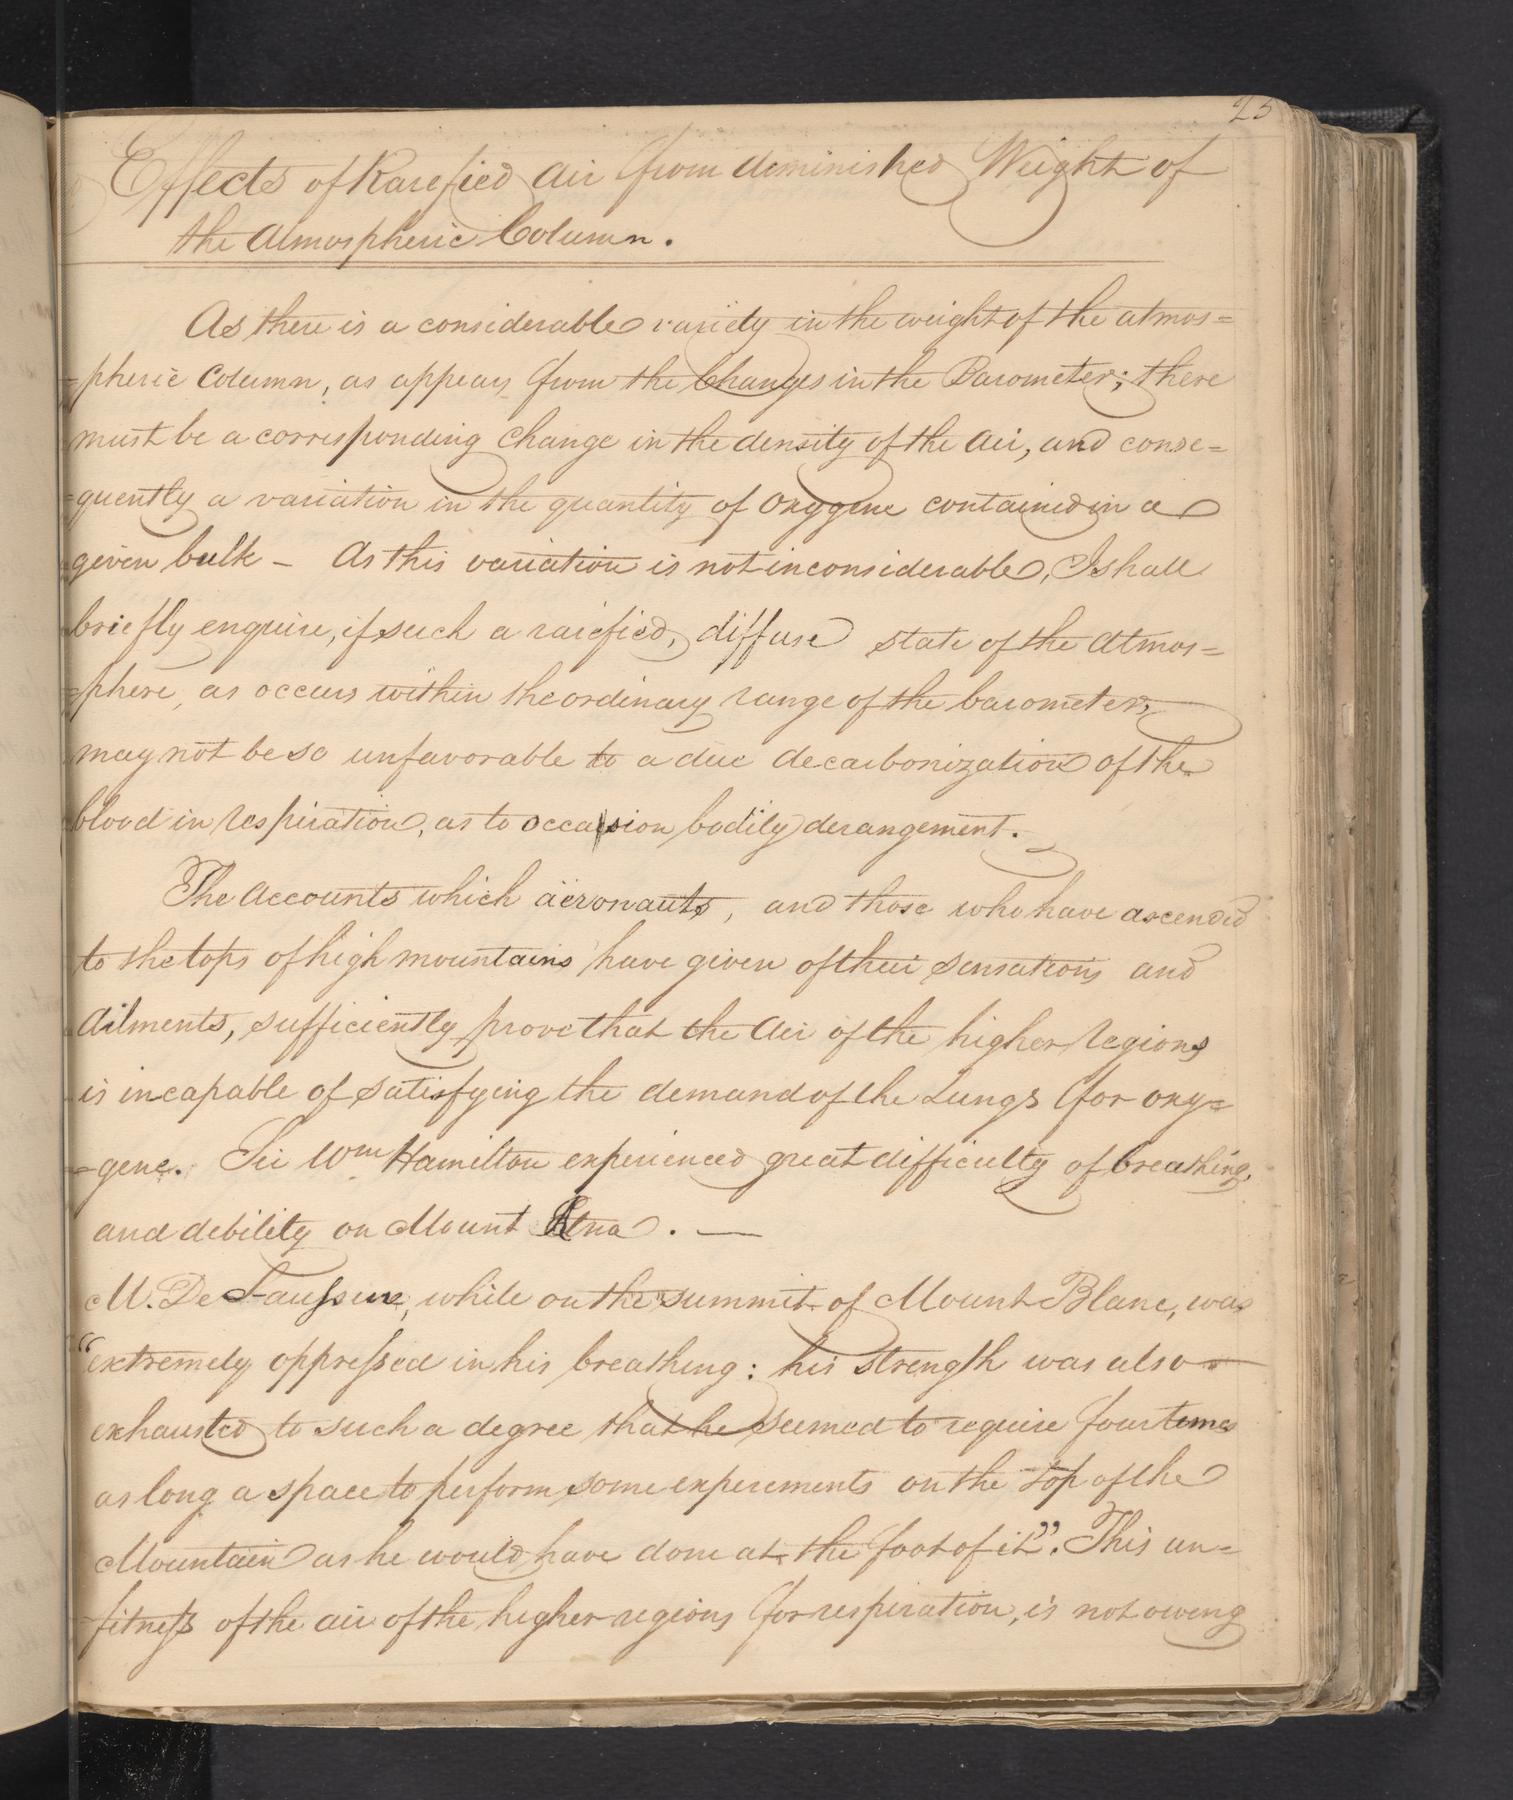 25
Effects of Rarefied air from deminished Weight of
the Atmospheric Column.
As there is a considerable variety in the weight of the atmos=
=pheric Column, as appears from the Changes in the Barometer; there
must be a corresponding change in the density of the air, and conse=
=quently a variation in the quantity of oxygene contained in a
given bulk – As this variation is not inconsiderable, I shall
briefly enquire, if such a rarefied, diffuse state of the atmos=
=phere, as occurs within the ordinary range of the barometer,
may not be so unfavorable to a due decarbonization of the
blood in respiration, as to occasion bodily derangement.
The accounts which aëronauts, and those who have ascended
to the tops of high mountains have given of their sensations and
ailments, sufficiently prove that the air of the higher regions
is incapable of satisfying the demand of the Lungs for oxy=
=gene. Sir Wm Hamilton experienced great difficulty of breathing,
and debility on Mount Etna. —
M. De Saussure, while on the summit of Mount Blanc, was
"extremely oppressed in his breathing: his strength was also
exhausted to such a degree that he seemed to require four times
as long a space to perform some experements on the top of the
Mountain as he would have done at the foot of it". This un=
fitness of the air of the higher regions for respiration, is not oweng